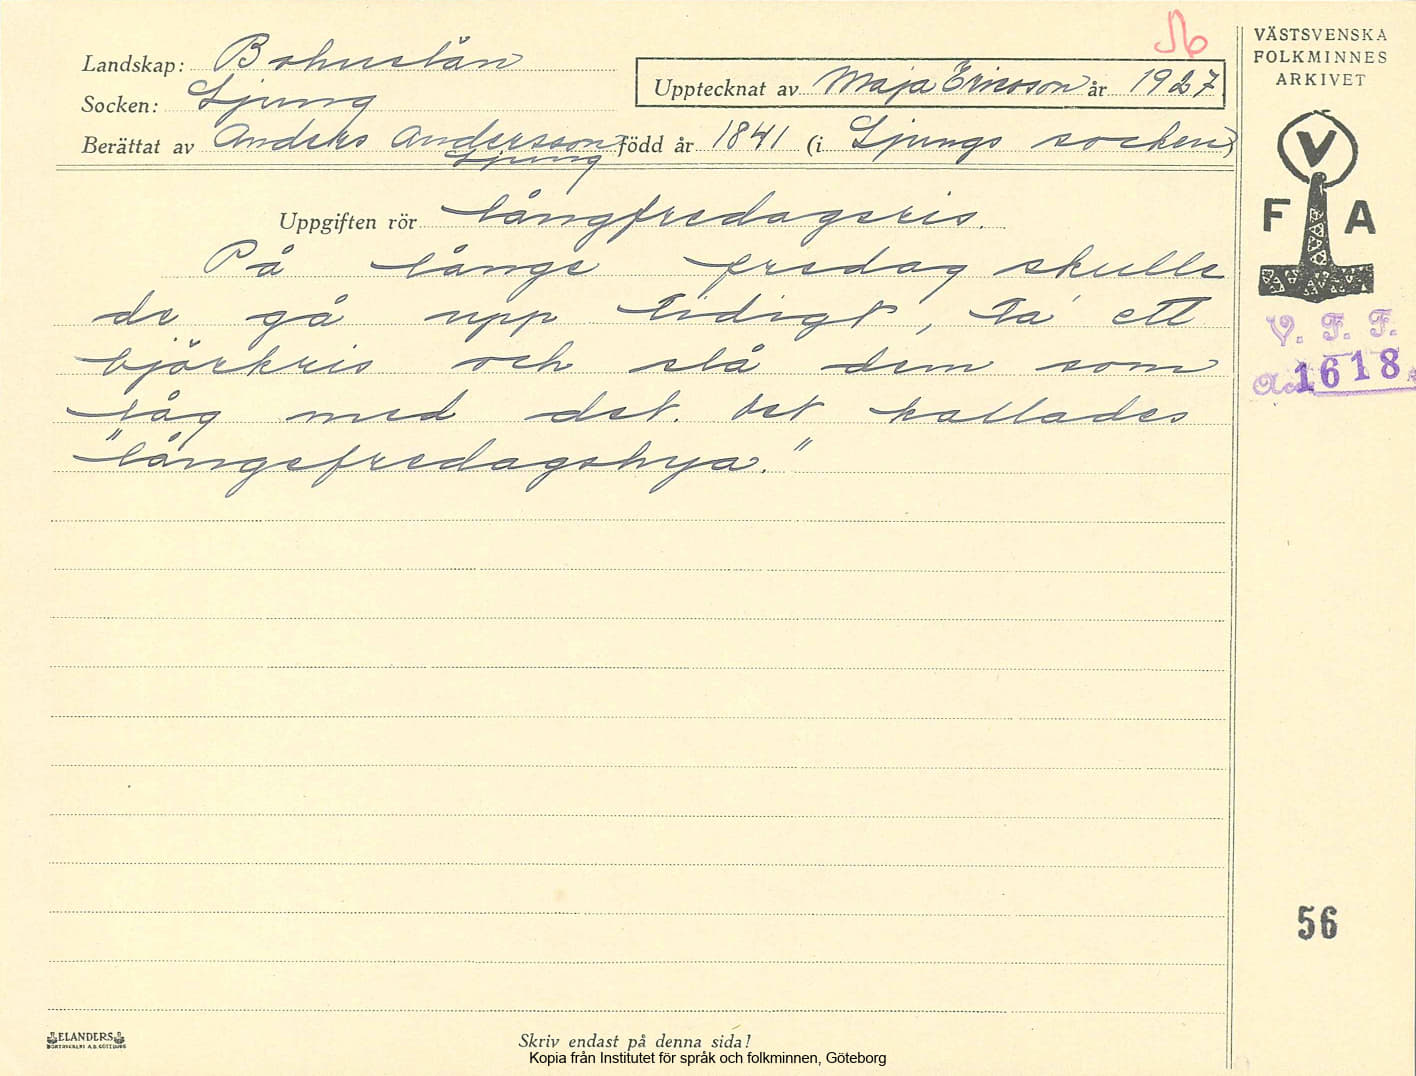 56
VÄSTSVENSKA
FOLKMINNES
ARKIVET
Landskap: Bohuslän
Upptecknat av Maja Ericsson år 1927
Socken: Ljung
Berättat av Anders Andersson född år 1841 (i Ljungs socken)
Ljung
V
F A
Uppgiften rör långfredagsris.
På långe fredag skulle
de gå upp tidigt, ta ett
björkris och slå dem som
låg med det. Det kallades
"långefredagshya."
V. F. F.
Acc. 1618
56
ELANDERS
BOKTRYCKERI A.B. GÖTEBORG
Skriv endast på denna sida!
Kopia från Institutet för språk och folkminnen, Göteborg